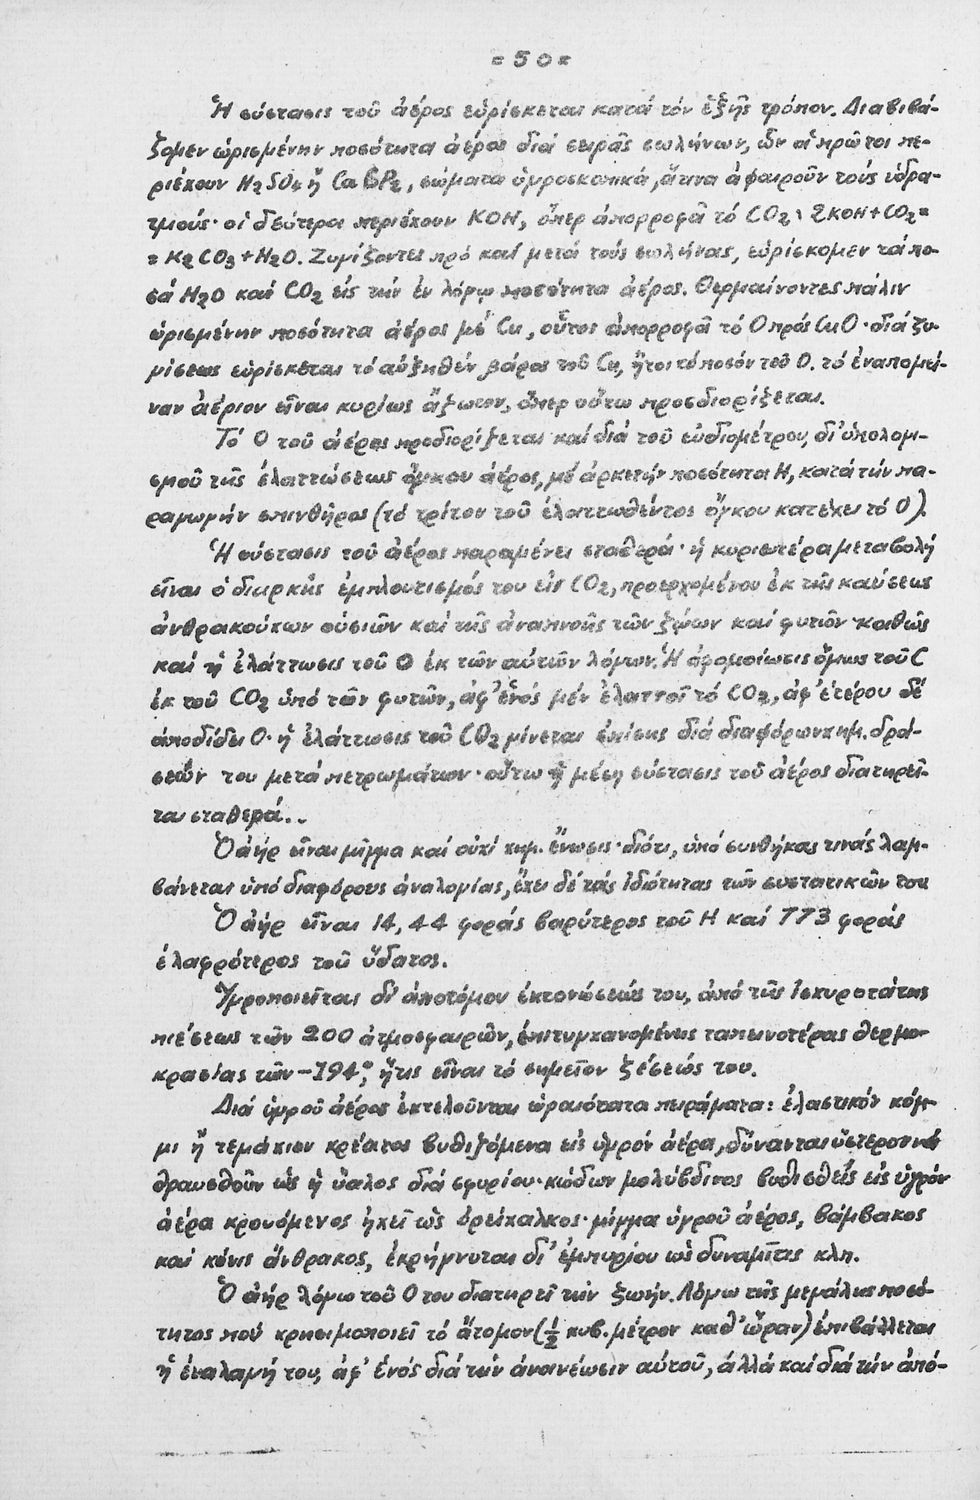 = 50 =
Ἡ σύστασις τοῦ ἀέρος εὑρίσκεται κατά τόν ἑξῆς τρόπον. Διαβιβά-
ζομεν ὡρισμένην ποσότητα ἀέρος διά σειρᾶς σωλήνων, ὧν οἱ πρῶτοι πε-
ριέχουν H₂SO₄ ἤ Ca , σώματα ὑγροσκοπικά, ἅτινα ἀφαιροῦν τούς ὑδρα-
τμούς· οἱ δεύτεροι περιέχουν KOH, ὅπερ ἀπορροφᾶ τό CO₂: 2KOH+CO₂=
= K₂CO₃+H₂O. Ζυγίζοντες πρό καί μετά τούς σωλήνας, εὑρίσκομεν τά πο-
σά H₂O καί CO₂ εἰς τήν ἐν λόγῳ ποσότητα ἀέρος. Θερμαίνοντες πάλιν
ὡρισμένην ποσότητα ἀέρος μέ Cu, οὗτος ἀπορροφᾶ τό O πρός CuO· διά ζυ-
γίσεως εὑρίσκεται τό αὐξηθέν βάρος τοῦ Cu, ἤτοι τό ποσόν τοῦ O. τό ἐναπομεῖ-
ναν ἀέριον εἶναι κυρίως ἄζωτον, ὅπερ οὕτω προσδιορίζεται.
Τό O τοῦ ἀέρος προδιορίζεται καί διά τοῦ εὐδιομέτρου, δι' ὑπολογι-
σμοῦ τῆς ἐλαττώσεως ὄγκου ἀέρος, μέ ἀρκετήν ποσότητα H, κατά τήν πα-
ραγωγήν σπινθῆρος (τό τρίτον τοῦ ἐλαττωθέντος ὄγκου κατέχει τό O).
Ἡ σύστασις τοῦ ἀέρος παραμένει σταθερά· ἡ κυριωτέρα μεταβολή
εἶναι ὁ διαρκής ἐμπλουτισμός του εἰς CO₂, προερχομένου ἐκ τῆς καύσεως
ἀνθρακούχων οὐσιῶν καί τῆς ἀναπνοῆς τῶν ζώων καί φυτῶν καθώς
καί ἡ ἐλάττωσις τοῦ O ἐκ τῶν αὐτῶν λόγων. Ἡ ἀφομοίωσις ὅμως τοῦ C
ἐκ τοῦ CO₂ ὑπό τῶν φυτῶν, ἀφ' ἑνός μέν ἐλαττοῖ τό CO₂, ἀφ' ἑτέρου δέ
ἀποδίδει O· ἡ ἐλάττωσις τοῦ CO₂ γίνεται ἐπίσης διά διαφόρων χημ. δρά-
σεῶν του μετά πετρωμάτων· οὕτω ἡ μέση σύστασις τοῦ ἀέρος διατηρεῖ-
ται σταθερά..
Ὁ ἀήρ εἶναι μῖγμα καί οὐχί χημ. ἕνωσις· διότι, ὑπό συνθήκας τινάς λαμ-
βάνεται ὑπό διαφόρους ἀναλογίας, ἔχει δέ τάς ἰδιότητας τῶν συστατικῶν του
Ὁ ἀήρ εἶναι 14,44 φοράς βαρύτερος τοῦ H καί 773 φοράς
ἐλαφρότερος τοῦ ὕδατος.
Ὑγροποιεῖται δι' ἀποτόμου ἐκτονώσεώς του, ἀπό τῆς ἰσχυροτάτης
πιέσεως τῶν 200 ἀτμοσφαιρῶν, ἐπιτυγχανομένης ταπεινοτέρας θερμο-
κρασίας τῶν -194°, ἥτις εἶναι τό σημεῖον ζέσεώς του.
Διά ὑγροῦ ἀέρος ἐκτελοῦνται ὡραιότατα πειράματα: ἐλαστικόν κόμ-
μι ἤ τεμάχιον κρέατος βυθιζόμενα εἰς ὑγρόν ἀέρα, δύνανται ὕστερον νά
θραυσθοῦν ὡς ἡ ὕαλος διά σφυρίου· κώδων μολύβδινος βυθισθείς εἰς ὑγρόν
ἀέρα κρουόμενος ἠχεῖ ὡς ὀρείχαλκος· μῖγμα ὑγροῦ ἀέρος, βάμβακος
καί κόνις ἄνθρακος, ἐκρήγνυται δι' ἐμπυρίου ὡς δυναμῖτις κλπ.
Ὁ ἀήρ λόγω τοῦ O του διατηρεῖ τήν ζωήν. Λόγω τῆς μεγάλης ποσό-
τητος πού χρησιμοποιεῖ τό ἄτομον (½ κυβ. μέτρον καθ' ὥραν) ἐπιβάλλεται
ἡ ἐναλαγή του, ἀφ' ἑνός διά τήν ἀνανέωσιν αὐτοῦ, ἀλλά καί διά τήν ἀπό-